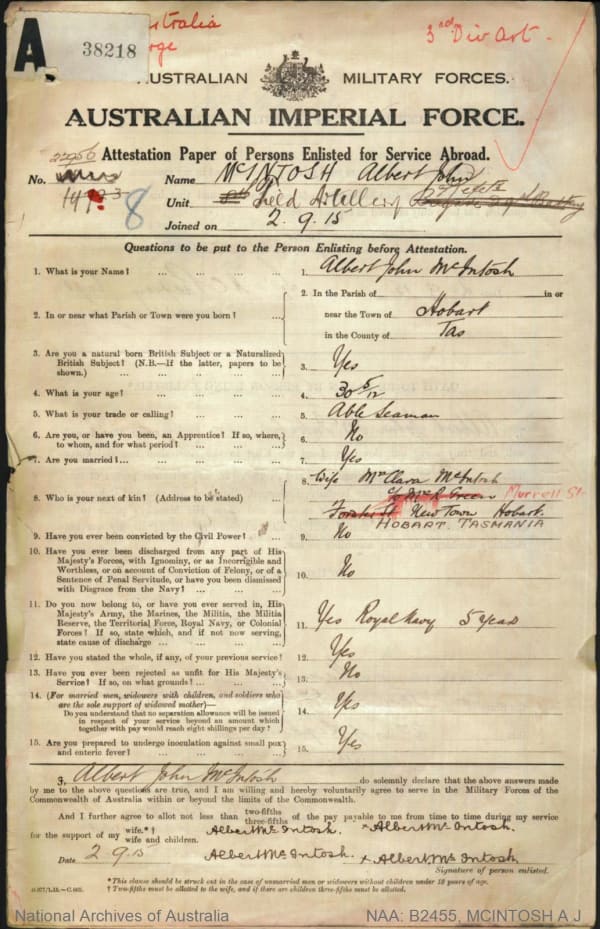 Australia
A
38218
3rd Div Art -
AUSTRALIAN MILITARY FORCES.
AUSTRALIAN IMPERIAL FORCE.
Attestation Paper of Persons Enlisted for Service Abroad.
No. Name McINTOSH Albert John
8 Unit Field Artillery
Joined on 2.9.15
Questions to be put to the Person Enlisting before Attestation.
1. What is your Name? ... ... ... ... 1. Albert John McIntosh
2. In or near what Parish or Town were you born? ... 2. In the Parish of in or
near the Town of Hobart
in the County of Tas
3. Are you a natural born British Subject or a Naturalized
British Subject? (N.B.—If the latter, papers to be
shown.) ... ... ... ... ... 3. Yes
4. What is your age? ... ... ... ... 4. 30 5/12
5. What is your trade or calling? ... ... ... 5. Able Seaman
6. Are you, or have you been, an Apprentice? If so, where,
to whom, and for what period? ... ... ... 6. No
7. Are you married? ... ... ... ... 7. Yes
8. Who is your next of kin? (Address to be stated) ... 8. Wife Mrs Clara McIntosh
c/o Mr R Green Murrell St
Forster St New Town Hobart.
HOBART. TASMANIA
9. Have you ever been convicted by the Civil Power? ... 9. No
10. Have you ever been discharged from any part of His
Majesty's Forces, with Ignominy, or as Incorrigible and
Worthless, or on account of Conviction of Felony, or of a
Sentence of Penal Servitude, or have you been dismissed
with Disgrace from the Navy? ... ... ... 10. No
11. Do you now belong to, or have you ever served in, His
Majesty's Army, the Marines, the Militia, the Militia
Reserve, the Territorial Force, Royal Navy, or Colonial
Forces? If so, state which, and if not now serving,
state cause of discharge ... ... ... ... 11. Yes Royal Navy 5 Years
12. Have you stated the whole, if any, of your previous service? 12. Yes
13. Have you ever been rejected as unfit for His Majesty's
Service? If so, on what grounds? ... ... ... 13. No
14. (For married men, widowers with children, and soldiers who
are the sole support of widowed mother)—
Do you understand that no separation allowance will be issued
in respect of your service beyond an amount which
together with pay would reach eight shillings per day? ... 14. Yes
15. Are you prepared to undergo inoculation against small pox
and enteric fever? ... ... ... ... 15. Yes
I, Albert John McIntosh do solemnly declare that the above answers made
by me to the above questions are true, and I am willing and hereby voluntarily agree to serve in the Military Forces of the
Commonwealth of Australia within or beyond the limits of the Commonwealth.
And I further agree to allot not less than two-fifths three-fifths of the pay payable to me from time to time during my service
for the support of my wife.*† wife and children. Albert Mc Intosh. × Albert Mc Intosh.
Date 2 9.15 Albert Mc Intosh. × Albert Mc Intosh
Signature of person enlisted.
*This clause should be struck out in the case of unmarried men or widowers without children under 18 years of age.
† Two-fifths must be allotted to the wife, and if there are children three-fifths must be allotted.
National Archives of Australia NAA: B2455, MCINTOSH A J